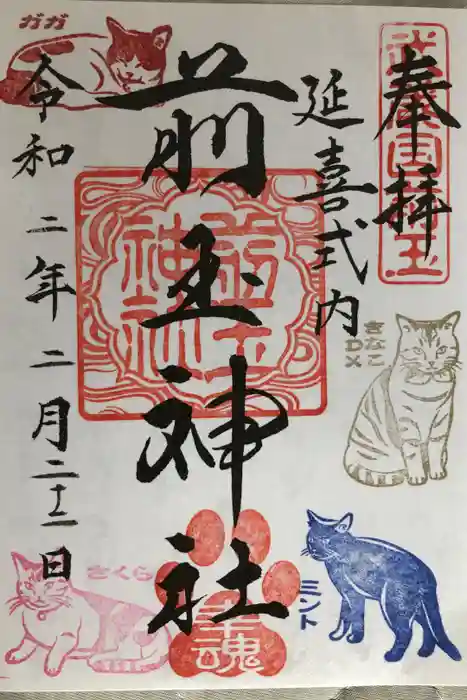 奉拝
武蔵国埼玉
延喜式内
前玉神社
前玉
神社
令和二年二月二十二日
ガガ
きなこ
DX
ミント
さくら
幸魂